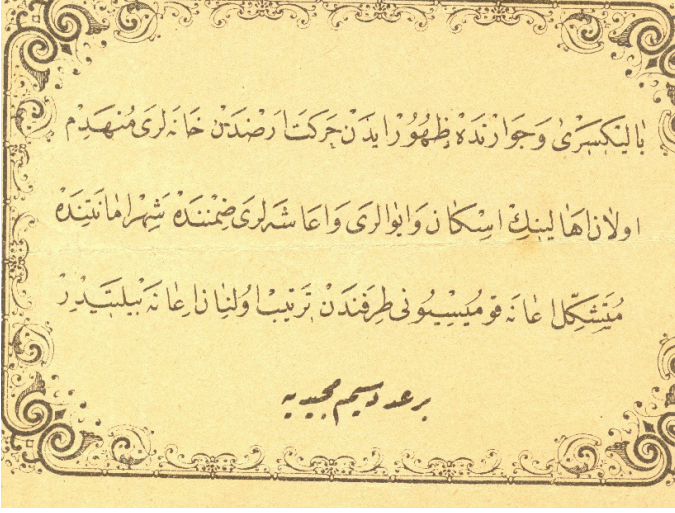 بالیكسرى وجوارنده ظهور ایدن حركت ارضدن خانه لرى منهدم
اولان اهالینك اسكان وایوالرى واعاشه لرى ضمننده شهر امانتنده
متشكل اعانه قومیسیونى طرفندن ترتیب اولنان اعانه بیلیتیدر
بر عدد سیم مجیدیه